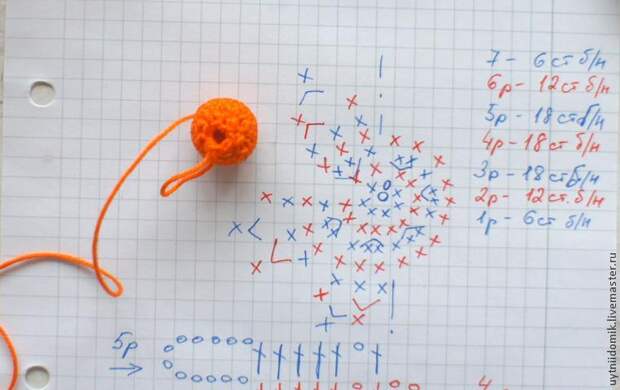 7 - 6 ст б/н
6р - 12 ст б/н
5р - 18 ст б/н
4р - 18 ст б/н
3р - 18 ст б/н
2р - 12 ст. б/н
1р - 6 ст б/н
5р
4
uytniidomik.livemaster.ru